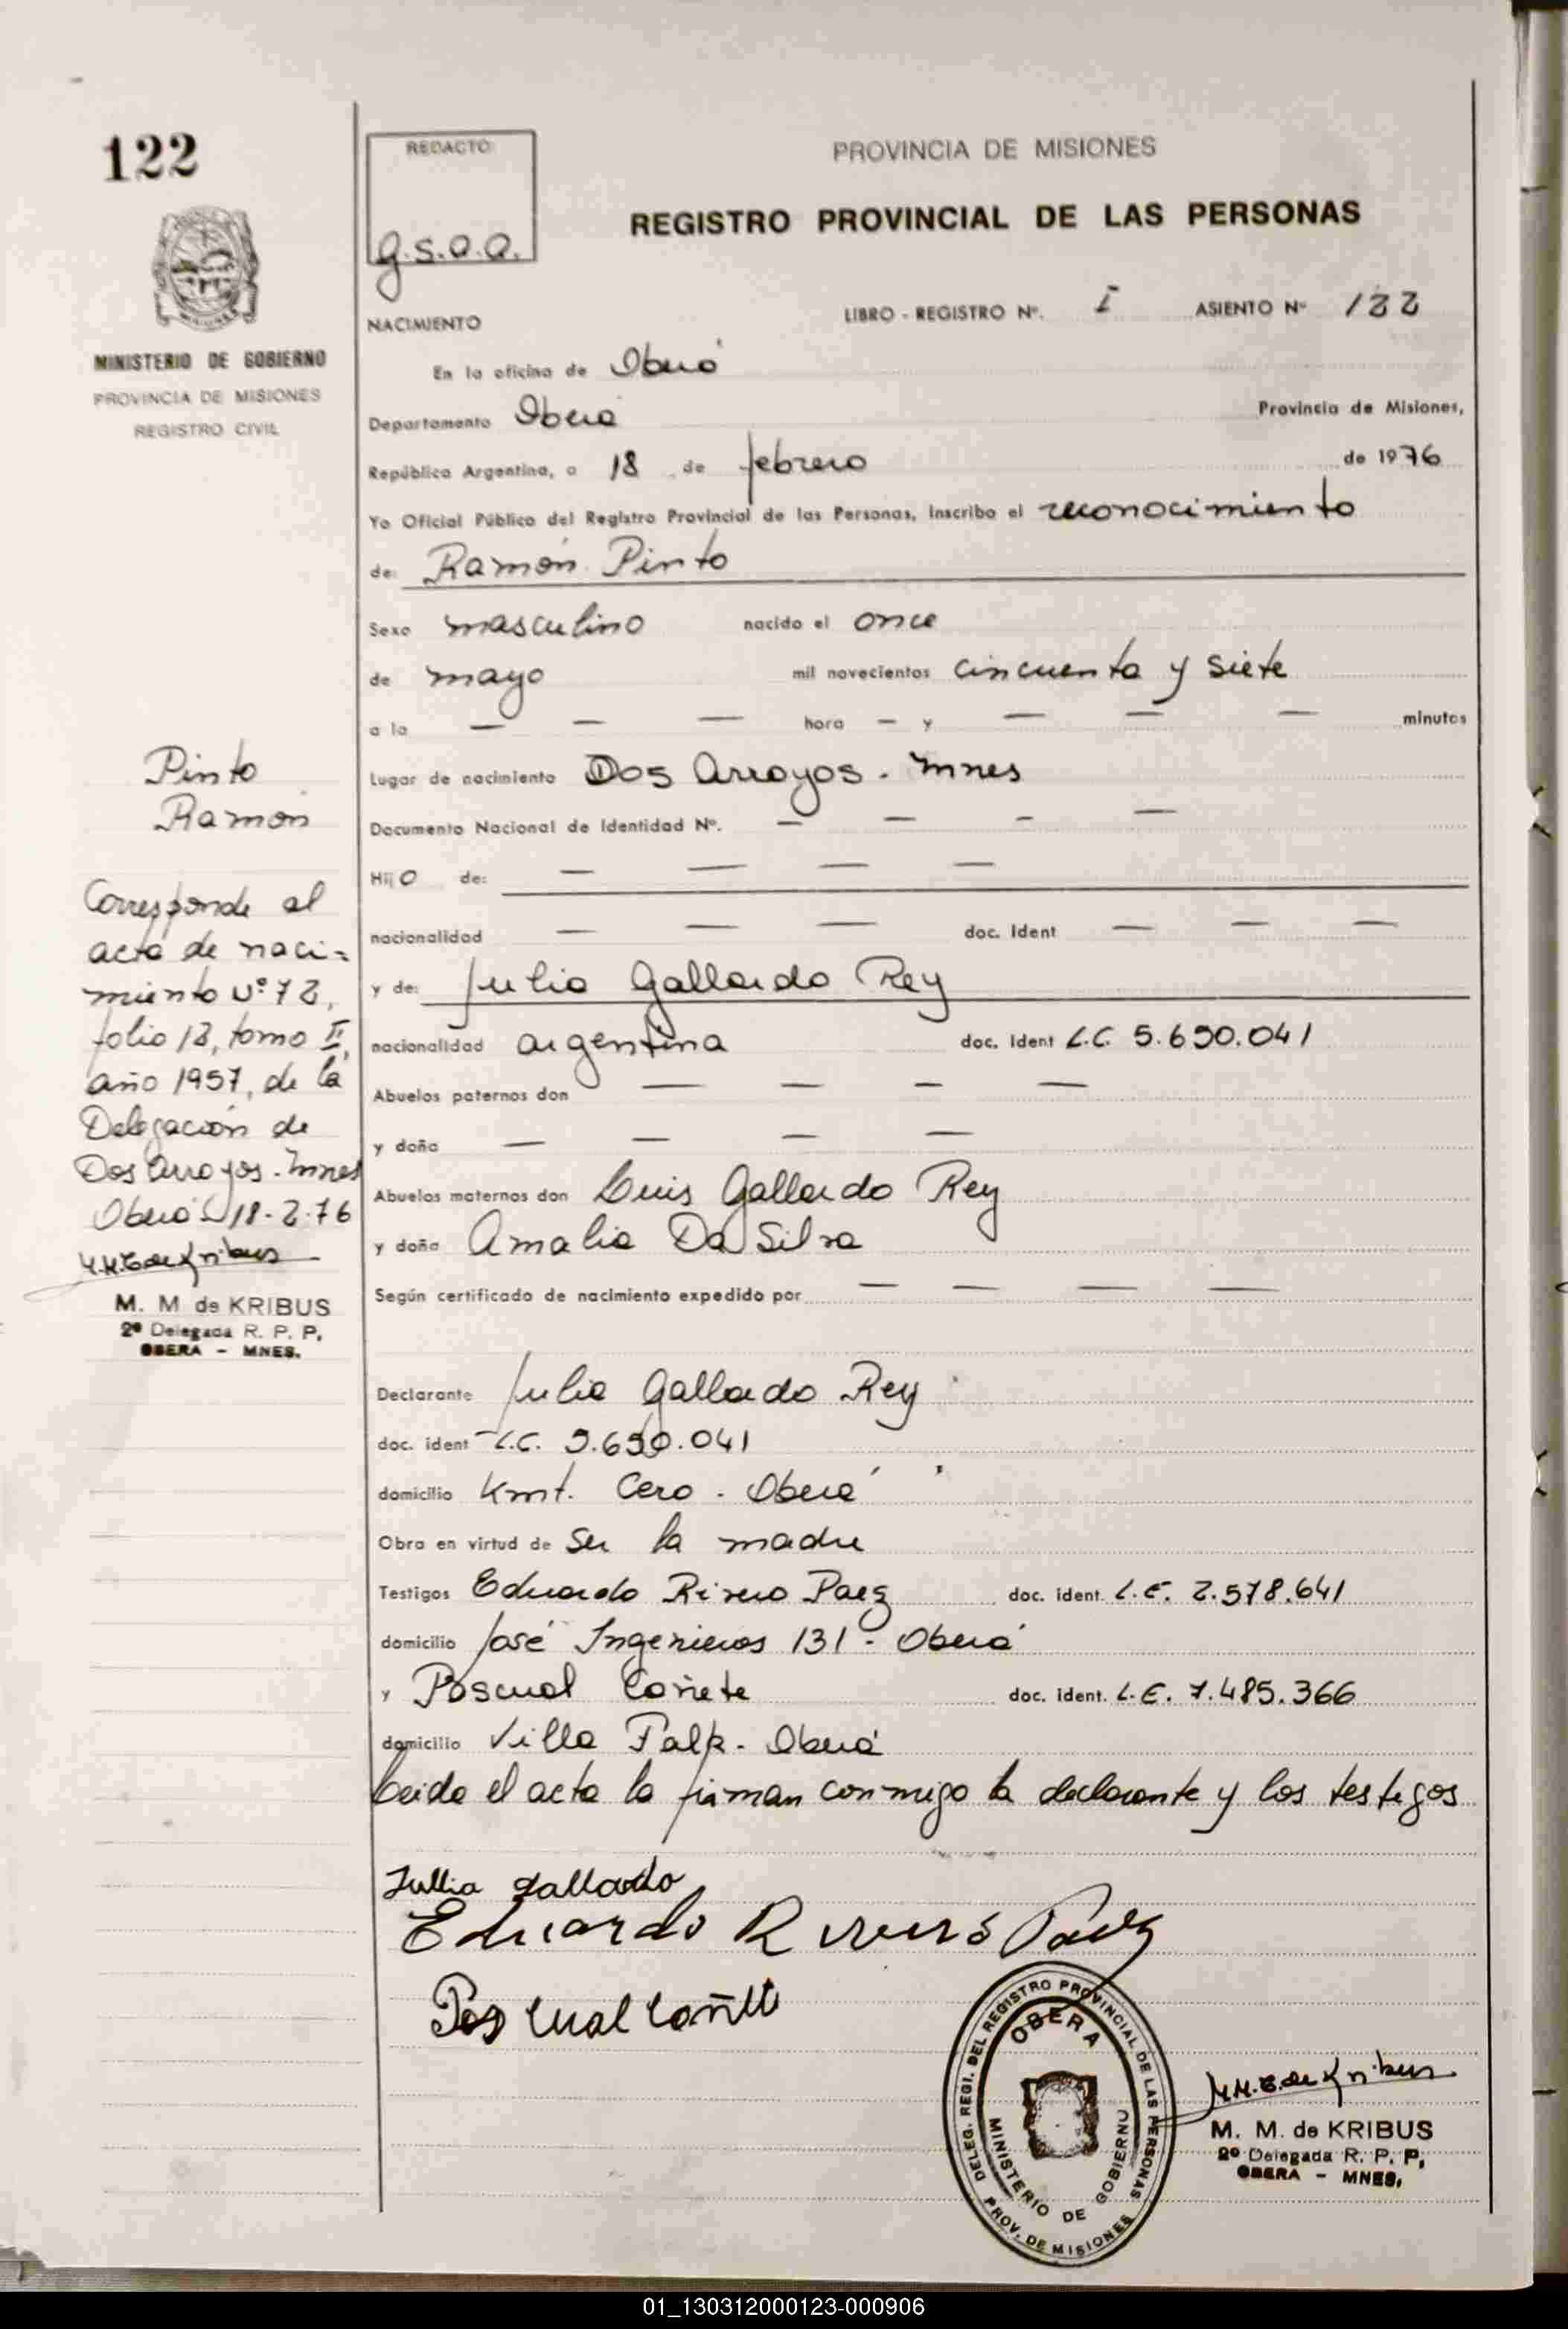 122
MINISTERIO DE GOBIERNO
PROVINCIA DE MISIONES
REGISTRO CIVIL
REDACTO
g.s.a.a.
PROVINCIA DE MISIONES
REGISTRO PROVINCIAL DE LAS PERSONAS
NACIMIENTO LIBRO - REGISTRO Nº. I ASIENTO Nº 122
En la oficina de Oberá
Departamento Oberá Provincia de Misiones,
República Argentina, a 18 de febrero de 1976
Yo Oficial Público del Registro Provincial de las Personas, inscribo el reconocimiento
de: Ramón Pinto
Sexo masculino nacido el once
de mayo mil novecientos cincuenta y siete
a la — — — hora — y — — — minutos
Lugar de nacimiento Dos Arroyos. Mnes
Documento Nacional de Identidad Nº. — — — —
Hijo de: — — — —
nacionalidad — — — doc. Ident — — —
y de: Julia Gallardo Rey
nacionalidad argentina doc. Ident L.C. 5.690.041
Abuelos paternos don — — — —
y doña — — — —
Abuelos maternos don Luis Gallardo Rey
y doña Amalia Da Silva
Según certificado de nacimiento expedido por — — — —
Declarante Julia Gallardo Rey
doc. ident L.C. 5.690.041
domicilio Kmt. Cero - Oberá
Obra en virtud de ser la madre
Testigos Eduardo Rivero Paez doc. ident. L.E. 2.578.641
domicilio José Ingenieros 131 - Oberá
y Pascual Cañete doc. ident. L.E. 7.485.366
domicilio Villa Falk - Oberá
Leida el acta la firman conmigo la declarante y los testigos
Jullia gallardo
Eduardo Rivero Paez
Pascual Cañete
Pinto
Ramón
Corresponde al
acta de naci=
miento Nº 72,
folio 12, tomo II,
año 1957, de la
Delegación de
Dos Arroyos. Mnes
Oberá 18-2-76
M.M. de Kribus
M. M de KRIBUS
2ª Delegada R. P. P.
OBERA - MNES.
DELEG. REGI. DEL REGISTRO PROVINCIAL DE LAS PERSONAS
OBERA
MINISTERIO DE GOBIERNO
PROV. DE MISIONES
M.M. de Kribus
M. M. de KRIBUS
2º Delegada R. P. P.
OBERA - MNES.
01_130312000123-000906